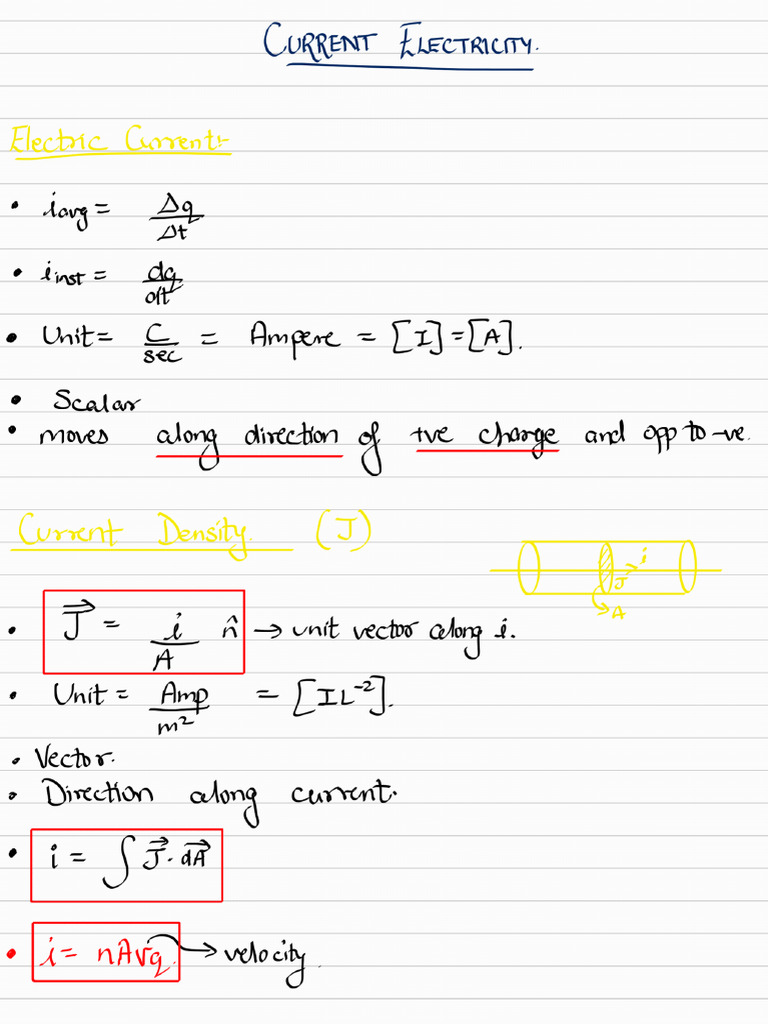 CURRENT ELECTRICITY.
Electric Current:-
• iavg = Δq/Δt
• iinst = dq/dt
• Unit = C/sec = Ampere = [I] = [A].
• Scalar
• moves along direction of +ve charge and opp to -ve.
Current Density. (J)
i
J
A
• J⃗ = i/A n̂ → unit vector along i.
• Unit = Amp/m² = [IL⁻²].
• Vector.
• Direction along current.
• i = ∫ J⃗ · dA⃗
• i = nAvq. → velocity.